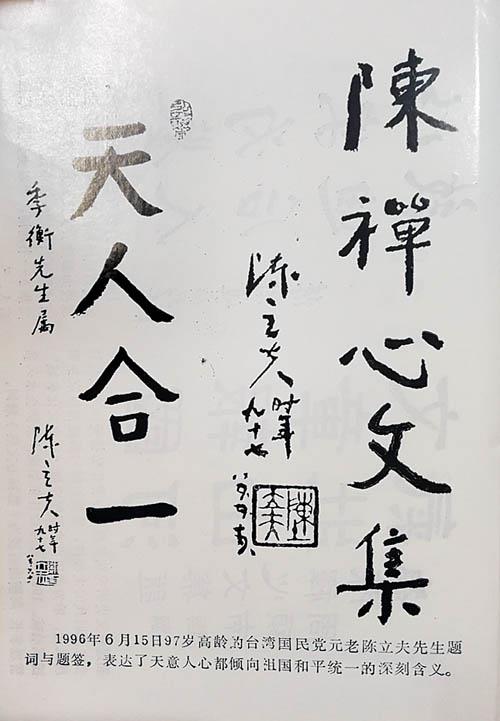 陳禪心文集
陈立夫 时年
九十七
天人合一
季衡先生属
陈立夫 时年
九十七
1996年6月15日97岁高龄的台湾国民党元老陈立夫先生题
词与题签，表达了天意人心都倾向祖国和平统一的深刻含义。